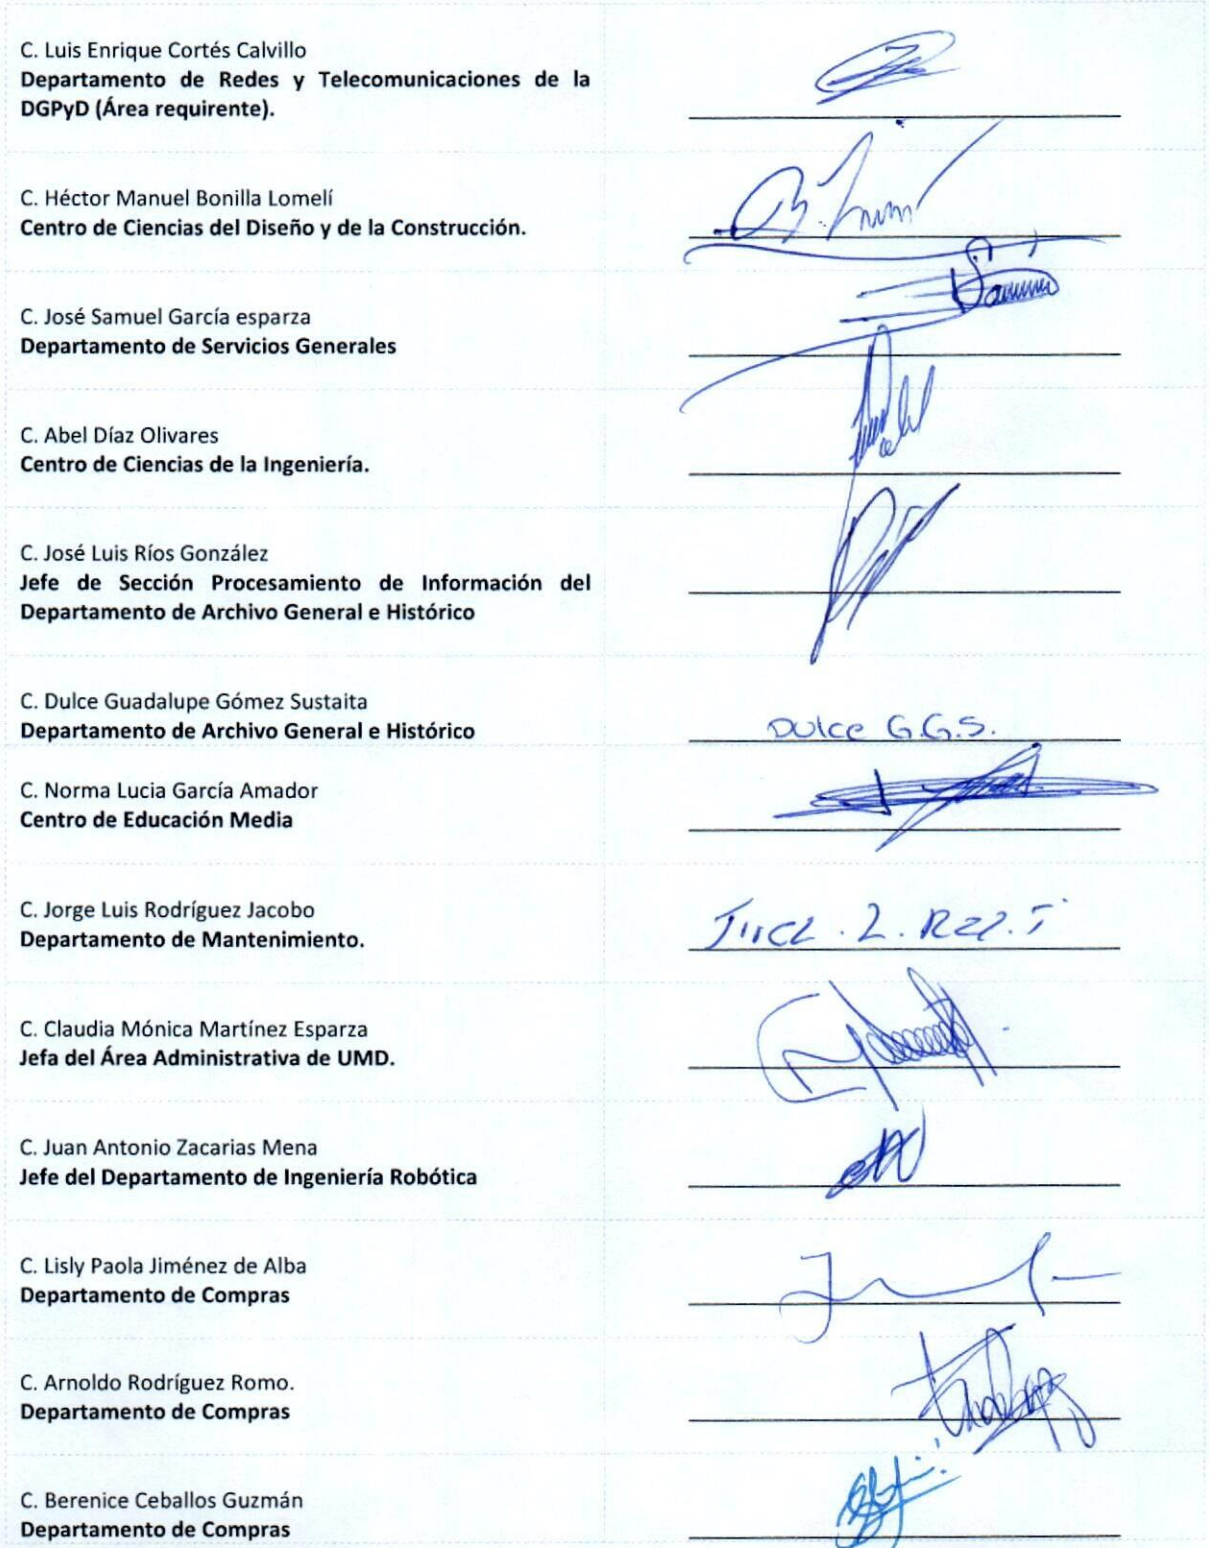 C. Luis Enrique Cortés Calvillo
Departamento de Redes y Telecomunicaciones de la
DGPyD (Área requirente).
C. Héctor Manuel Bonilla Lomelí
Centro de Ciencias del Diseño y de la Construcción.
C. José Samuel García esparza
Departamento de Servicios Generales
C. Abel Díaz Olivares
Centro de Ciencias de la Ingeniería.
C. José Luis Ríos González
Jefe de Sección Procesamiento de Información del
Departamento de Archivo General e Histórico
C. Dulce Guadalupe Gómez Sustaita
Departamento de Archivo General e Histórico
Dulce G.G.S.
C. Norma Lucia García Amador
Centro de Educación Media
C. Jorge Luis Rodríguez Jacobo
Departamento de Mantenimiento.
C. Claudia Mónica Martínez Esparza
Jefa del Área Administrativa de UMD.
C. Juan Antonio Zacarias Mena
Jefe del Departamento de Ingeniería Robótica
C. Lisly Paola Jiménez de Alba
Departamento de Compras
C. Arnoldo Rodríguez Romo.
Departamento de Compras
C. Berenice Ceballos Guzmán
Departamento de Compras